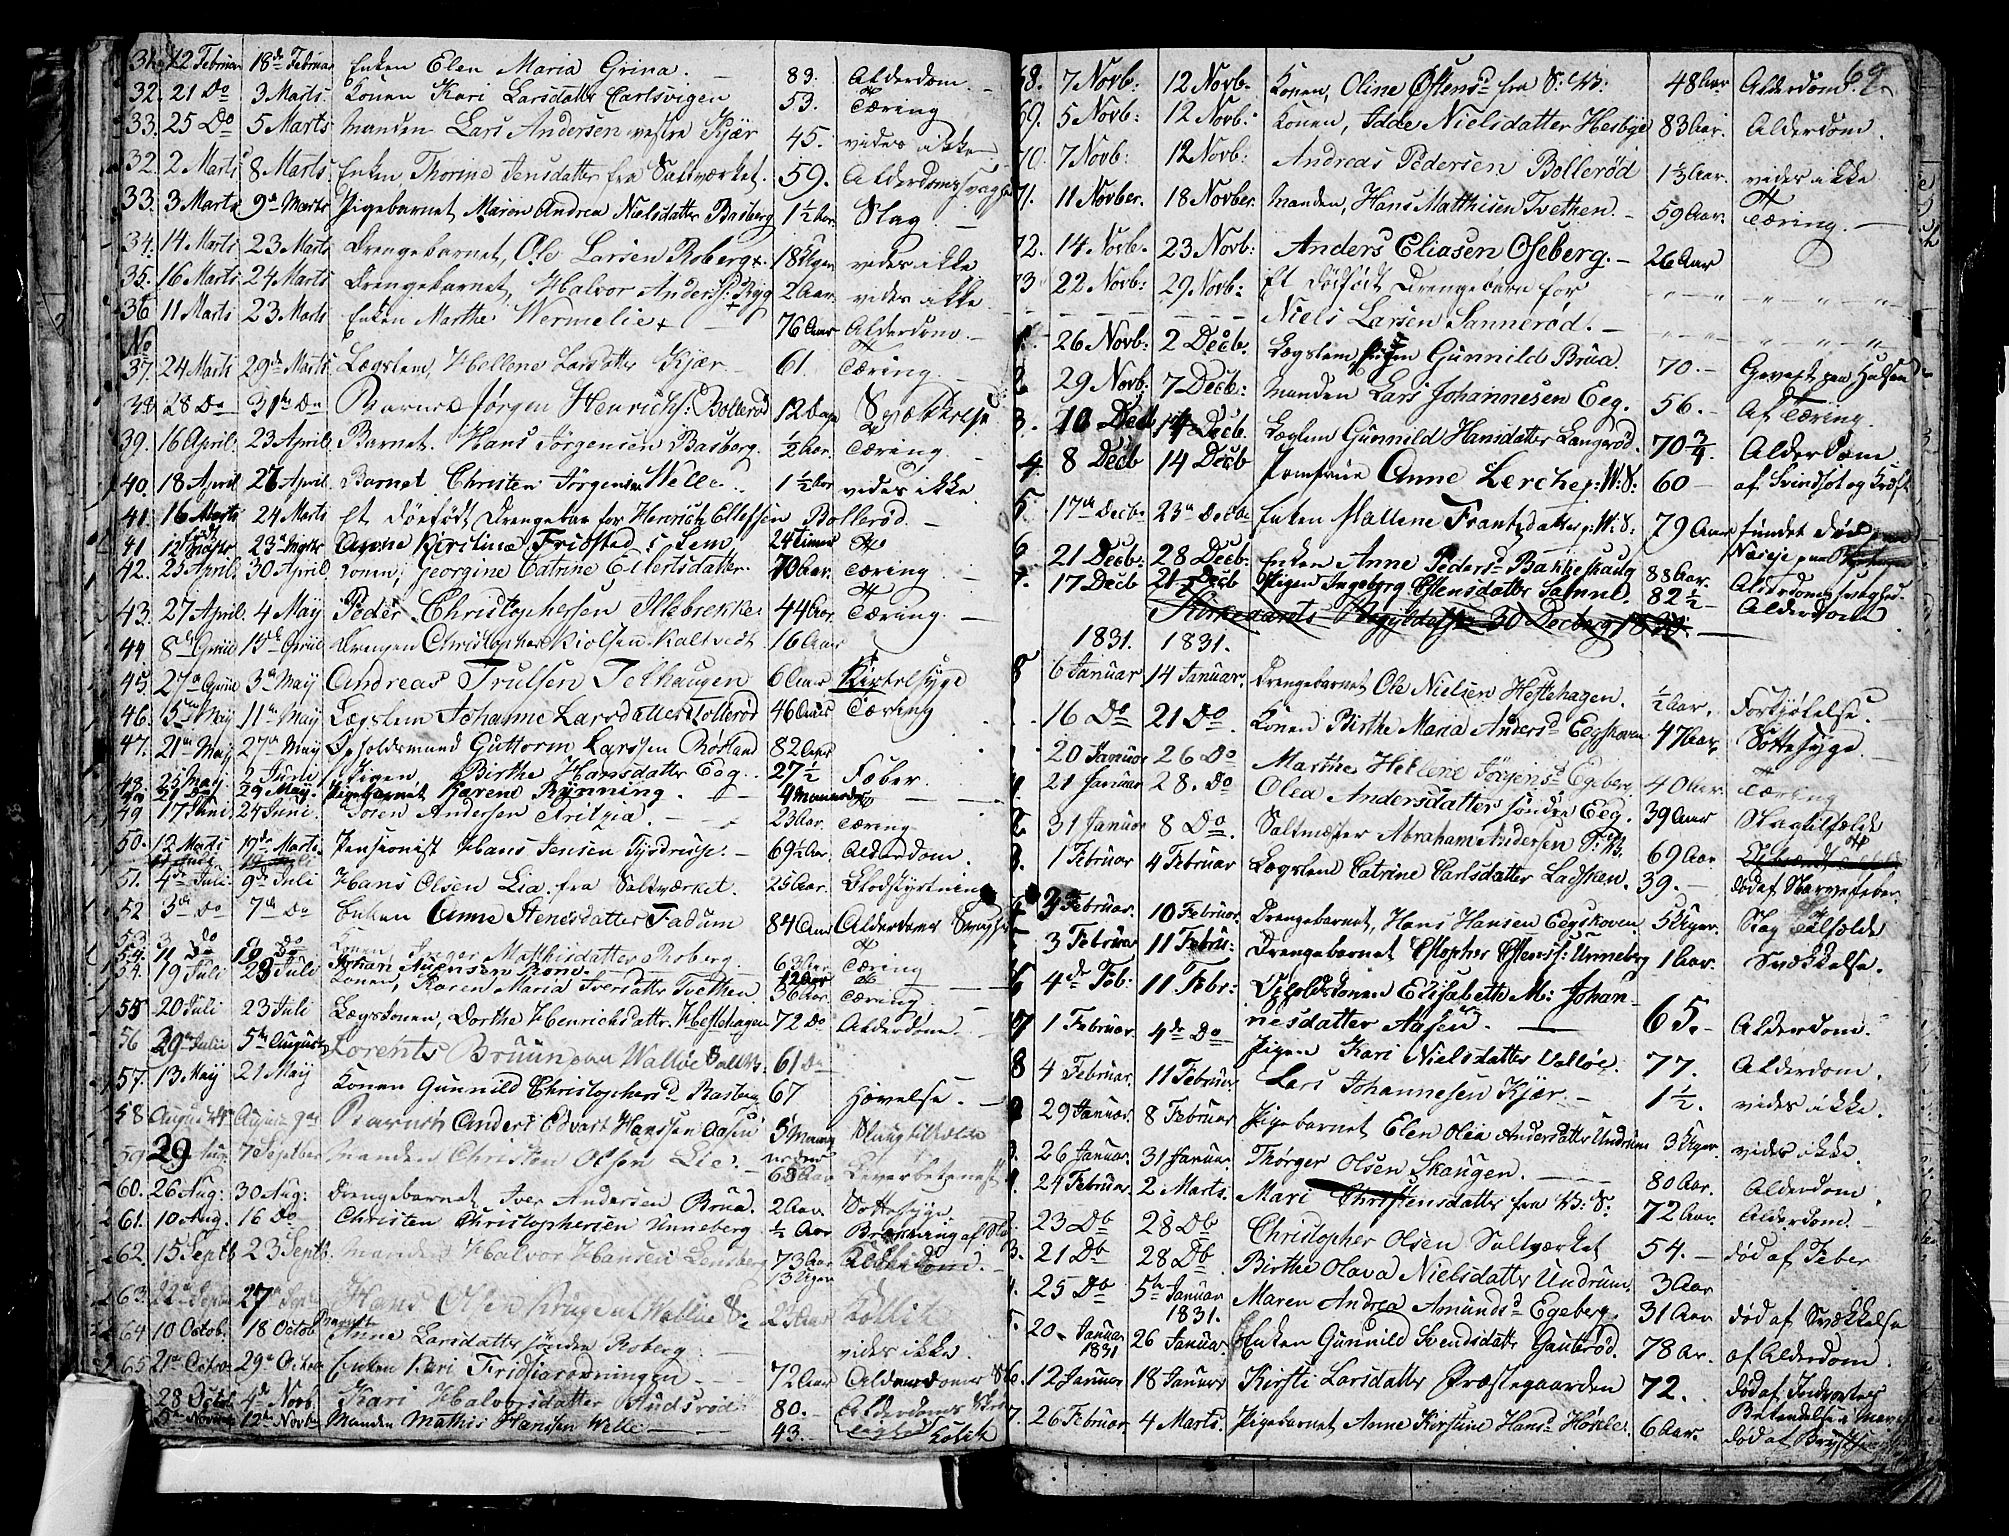 31. 12 Februar 18de Februar Enken Elen Maria Grina. 83. Alderdom.
32. 21 Do 3 Marts. Konen Kari Larsdatter Carlsvigen 53. Tæring
33. 25 Do 5 Marts Manden Lars Andersen vestre Kjær 45. vides ikke
32. 2 Marts 8 Marts. Enken Thorine Jensdatter fra Saltværket. 59. Alderdomssvaghed
33. 3 Marts 9de Marts Pigebarnet Maren Andrea Nielsdatter Basberg 1½ Aar Slag.
34. 14 Marts 23 Marts Drengebarnet, Ole Larsen Roberg 18 Uger vides ikke
35. 16 Marts 24 Marts Drengebarnet, Halvor Anders: Ryg 2 Aar. vides ikke
36 11 Marts 23 Marts Enken Marthe Wermelie 76 Aar Alderdom
No
37. 24 Marts 29de Marts Lægslem, Hellene Larsdatter Kjær 61. Tæring.
38 28 Do 31te Do Barnet Jørgen Henrichs: Bollerød 12 Dage Svækkelse
39. 16 April. 23 April. Barnet. Hans Jørgensen Basberg. ½ Aar. Tæring.
40. 18 April 27 April. Barnet Christen Jørgensen Welle 1½ Aar vides ikke
41 16 Marts 24 Marts Et dødfødt Drengebarn for Henrich Ellefsen Bollerød.
41 12 Marts 23de Marts Anne Kirstine Fridstad i Lem 24 timer
42. 25 April. 30 April. Konen, Georgine Catrine Eilertsdatter 70 Aar. Tæring
43. 27 April. 4 May Peder Christophersen Illebrekke 44 Aar. Tæring
44 8de April 15de April Drengen Christopher Kiølsen Kaltvedt 16 Aar
45. 27de April 3de May Andreas Trulsen Telhaugen 6 Aar Kirtelsyge
46. 5te May 11te May Lægslem Johanne Larsdatter Tollerød 46 Aar Tæring
47. 21de May 27de May Opholdsmand Guttorm Larssen Rørland 82 Aar
48. 25 May 2 Juni Pigen, Birthe Hansdatter Eeg. 27½ Feber.
Pigebarnet Karen Rynning. 4 Maaneder
49 17 Juni 24 Juni. Søren Andersen 23 Aar. Tæring
50. 12 Marts 19de Marts Pensionist Hans Jensen Tysdrup. 69½ Aar. Alderdom.
51. 4de Juli. 9de Juli Hans Olsen Lia. fra Saltværket. 25 Aar. Blodstyrtning
52 3de Do 7de Do Enken Anne Stenesdatter Fadum 84 Aar Alderdoms Svaghed
53. Konen, Inger Mathisdatter Roberg. 63 Aar Tæring
54. 19 Juli 23 Juli Konen, Karen Maria Iversdatter Tvethen 36 Aar. Tæring.
55 20 Juli 23 Juli Lægskonen, Dorthe Henrichsdatter. Hestehagen 72 Do Alderdom.
56 29de Juli 5te August Lorents Bruun paa Walløe Saltv: 61 Do
57. 13 May 21 May Konen Gunnild Christophersd Basberg 67 Hævelse.
58 August 4de August 9de Barnet Anders Edvart Hanssen Aasen 5 Maaneder Slagtilfælde
59 29 Aug. 7 Septbr Manden Christen Olsen Lie. 65 Aar Leverbetændelse
60. 26 Aug: 30 Aug: Drengebarnet Iver Andersen Brua. 2 Aar. Sottesyge
61. 10 Aug. 16 Do Christen Christophersen Unneberg ½ Aar
62. 15 Septb 23 Septb. Manden Halvor Hansen Lensberg 73 Aar Alderdom.
63. 22de Septbr 27de Septbr Hans Olsen Walløe S: 13 Uger
64. 10 Octob. 18 Octob Barnet Anne Larsdatter søndre Roberg 23 Aar Kollik
65. 21de Octob 29de Octob Enken Kari vides ikke.
28 Octob 4de Novb. Kari Halvorsdatter Audsrød 72 Aar Alderdoms
5te Novemb 12te Novb Manden Mathis Hansen Welle 80. Alderdoms
43. Kolik
69
68. 7 Novb: 12 Novb. Konen, Oline Østensd fra S: W: 48 Aar Alderdom.
69. 5 Novb: 12 Novb: Konen, Idde Nielsdatter Hesby 83 Aar. Alderdom.
70. 7 Novb: 12 Novb: Andreas Pedersen Bollerød 1⅓ Aar. vides ikke
71. 11 Novber. 18 Novber. Manden, Hans Matthisen Tvethen. 59 Aar. Tæring.
72. 14 Novb. 23 Novb: Anders Eliasen Oseberg. 26 Aar
73 22 Novb: 29 Novb: Et dødfødt Drengebarn for
Niels Larsen Sannerød.
1 26 Novb: 2 Decb. Lægslem Pigen Gunnild Brua. 70. Gevext paa Halsen
2 29 Novb. 7 Decb: Manden Lars Johannesen Eeg. 56. Af Tæring.
3. 10 Decb 14 Decb. Lægslem Gunnild Hansdatter Langerød. 70¾. Alderdom
4. 8 Decb 14 Decb Jomfrue Anne Lerche p: W: S: 60 af Svindsot og Kræft
5 17de Decbr 23de Decbr Enken Mallene Frantzdatter p: W: S. 79 Aar fundet død
6 21 Decb: 28 Decb: Enken Anne Pedersd Bakkeskaug 88 Aar. Alderdomssvaghed.
7. 17 Decb 21 Decb Pigen Ingeborg Estensdatter 82½ Alderdom
1831. 1831.
8 6 Januar 14 Januar. Drengebarnet Ole Nielsen Hestehagen. ½ Aar. Forkjølelse.
16 Do 21 Do. Konen Birthe Maria Andersd Eegskoven 47 Aar. Sottesyge
20 Januar 26 Do Martine Hellene Jørgensd Egeberg. 40 Aar. Tæring
21 Januar 28. Do Olea Andersdatter søndre Eeg. 39 Aar Slagtilfælde
2 31 Januar 8 Do. Saltmester Abraham Andersen 69 Aar
3. 1 Februar 4 Februar Lægslem Catrine Carlsdatter 39. død af Nervefeber
3 Februar. 10 Februar. Drengebarnet, Hans Hansen Eegskoven. 5 Uger. Slagtilfælde
3 Februar 11 Febru: Drengebarnet Estopher Estens: Unneberg 1 Aar. Svækkelse.
6 4de Feb: 11. Febr: Opholdskonen Elisabeth M: Johan-
nesdatter Aasen. 65. Alderdom.
7 1 Februar 4de Do Pigen Kari Nielsdatter Valløe. 77. Alderdom.
8 4 Februar. 11 Februar Lars Johannesen Kjær. 1½. vides ikke.
29 Januar. 8 Februar Pigebarnet Elen Olea Andersdatter Undrum 3 Uger vides ikke.
26 Januar. 31 Januar. Thorger Olsen Skaugen. 80 Aar. Alderdom.
24 Februar. 2 Marts. Mari Christensdatter fra W: S. 72 Aar. Alderdom.
23 Do 28 Do Christopher Olsen Saltværket 54. død af Feber
3. 21 Do 28 Do Birthe Olava Nielsdatter Undrum. 3 Aar
25 Do 5te Januar
1831. Maren Andrea Amundsd Egeberg. 31 Aar død af Svækkelse
5. 20 Januar
1831 26 Januar Enken Gunnild Svendsdatter Gauterød. 78 Ar. af Alderdom.
6. 12 Januar 18 Januar Kirsti Larsdatter Præstegaarden 72. død af Indvortes
Betændelse i
7. 26 Februar. 4 Marts. Pigebarnet Anne Kirstine Hansd 6 Aar. død af